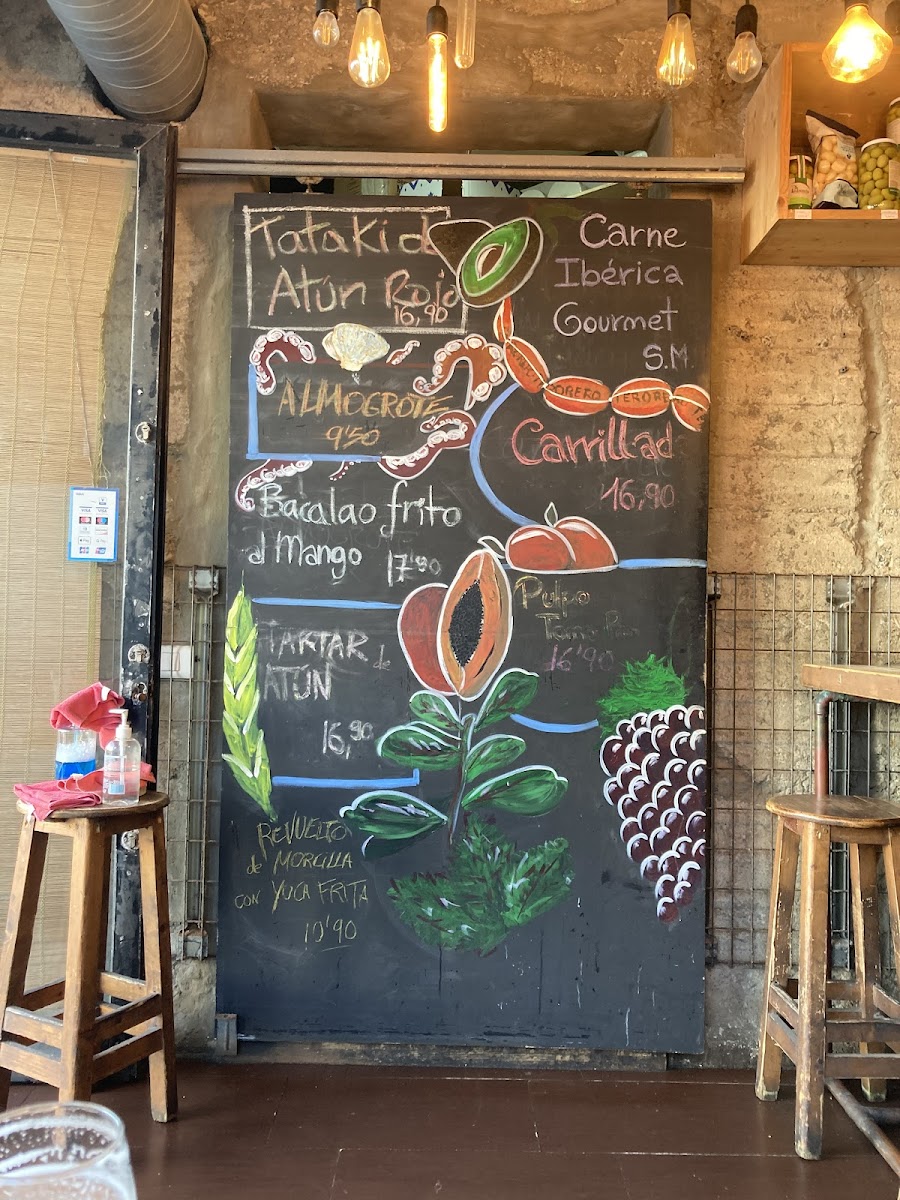 Tataki de
Atún Rojo
16,90
ALMOGROTE
9'50
Bacalao frito
al Mango
17'90
TARTAR de
ATÚN
16,90
REVUELTO
de MORCILLA
CON YUCA FRITA
10'90
Carne
Ibérica
Gourmet
S.M
CHORIZO TEROR
Carrillad
16,90
Pulpo
16'90
VISA VISA